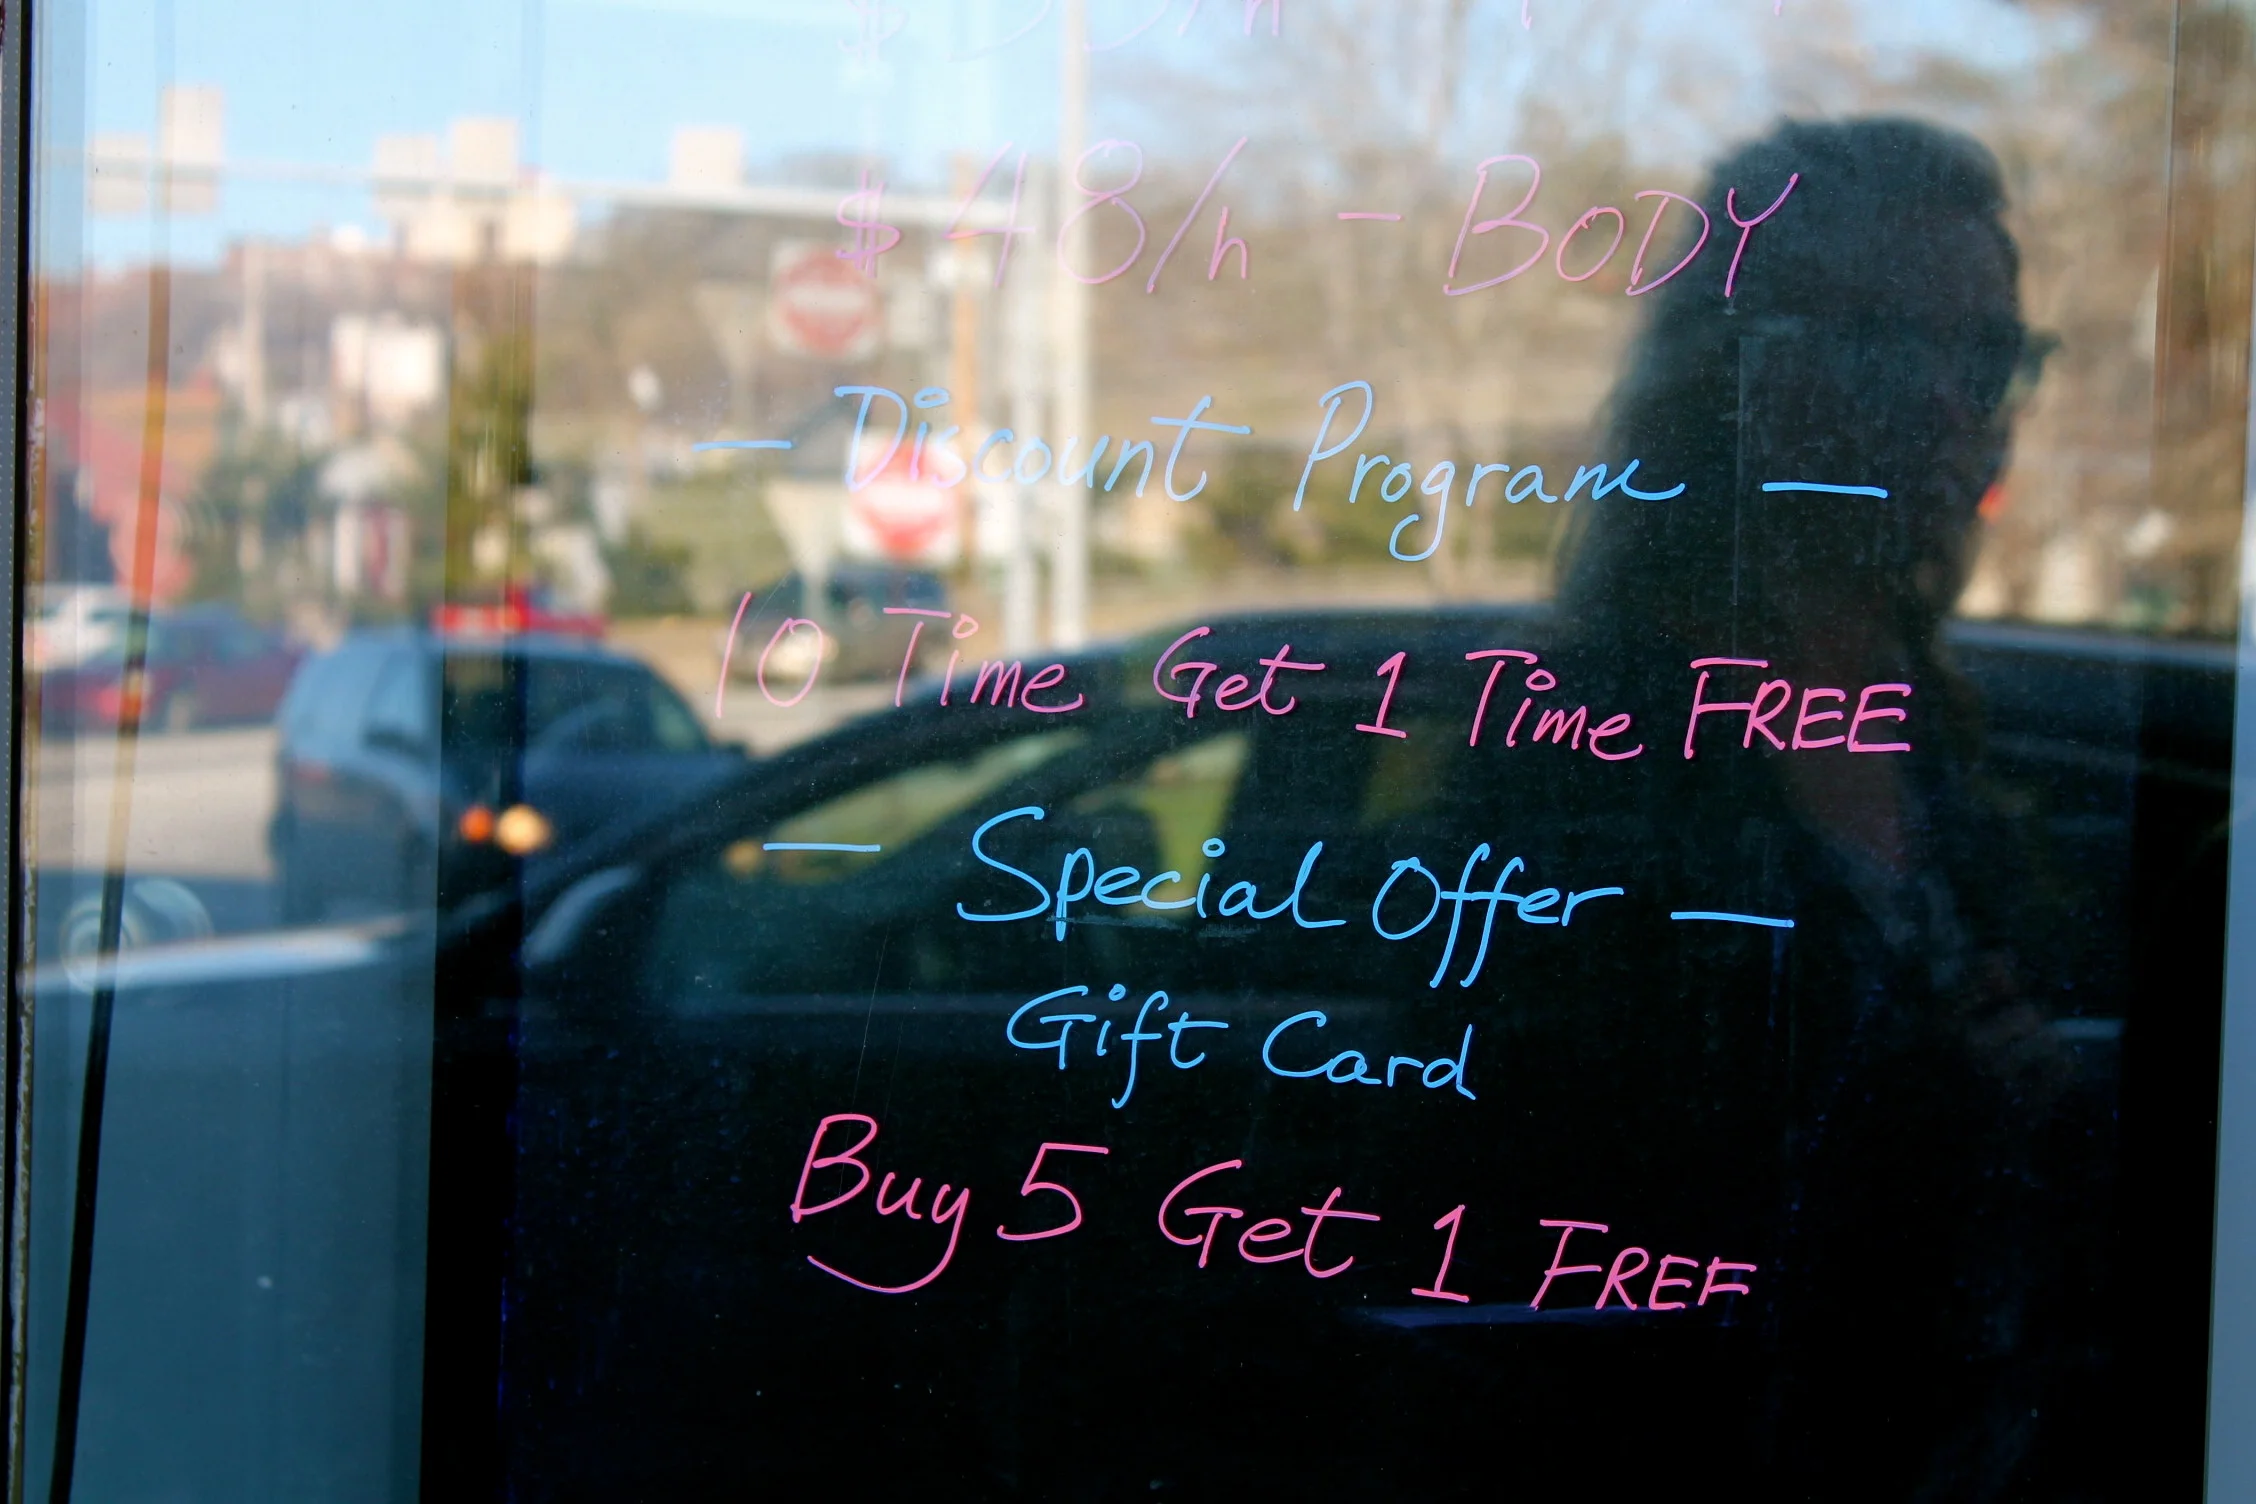 $48/h - BODY
- Discount Program -
10 Time Get 1 Time FREE
- Special Offer -
Gift Card
Buy 5 Get 1 FREE